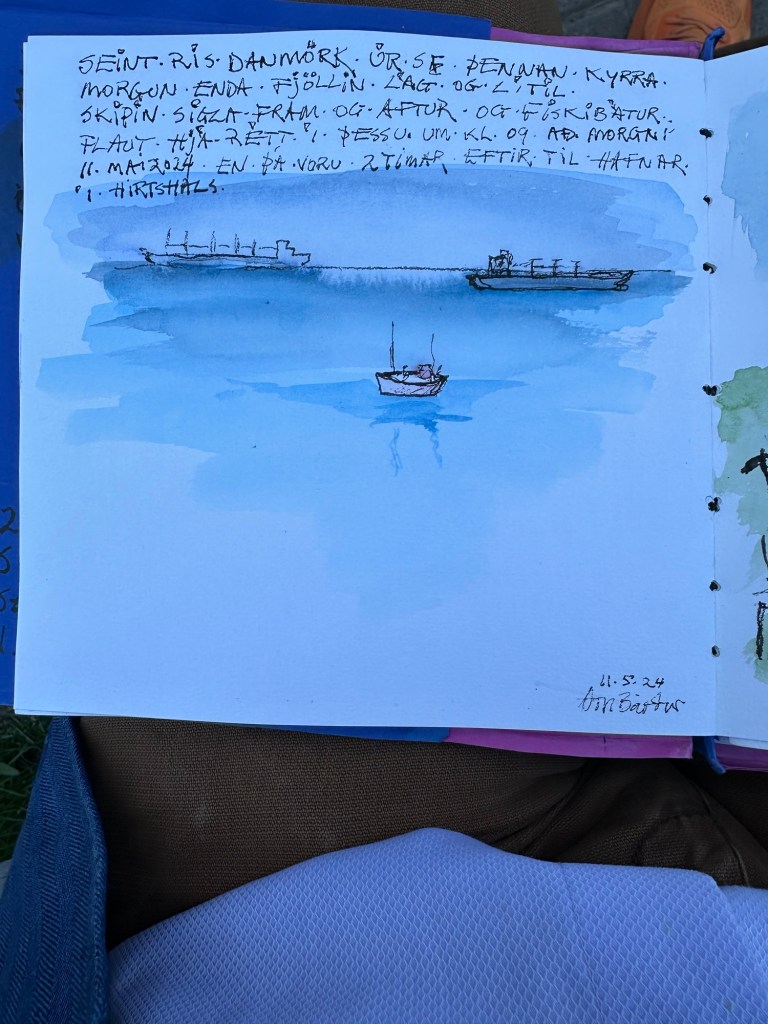 SEINT · RÍS · DANMÖRK · ÚR · SE · ÞENNAN · KYRRA ·
MORGUN · ENDA · FJÖLLIN · LÁG · OG · LÍTIL ·
SKIPIN · SIGLA · FRAM · OG · AFTUR · OG · FISKIBÁTUR ·
FLAUT · HJÁ · RÉTT · Í · ÞESSU · UM · KL · 09 · AÐ · MORGNI
11 · MAÍ 2024 · EN · ÞÁ · VORU · 2 TÍMAR · EFTIR · TIL · HAFNAR ·
Í · HIRTSHALS ·
11·5·24